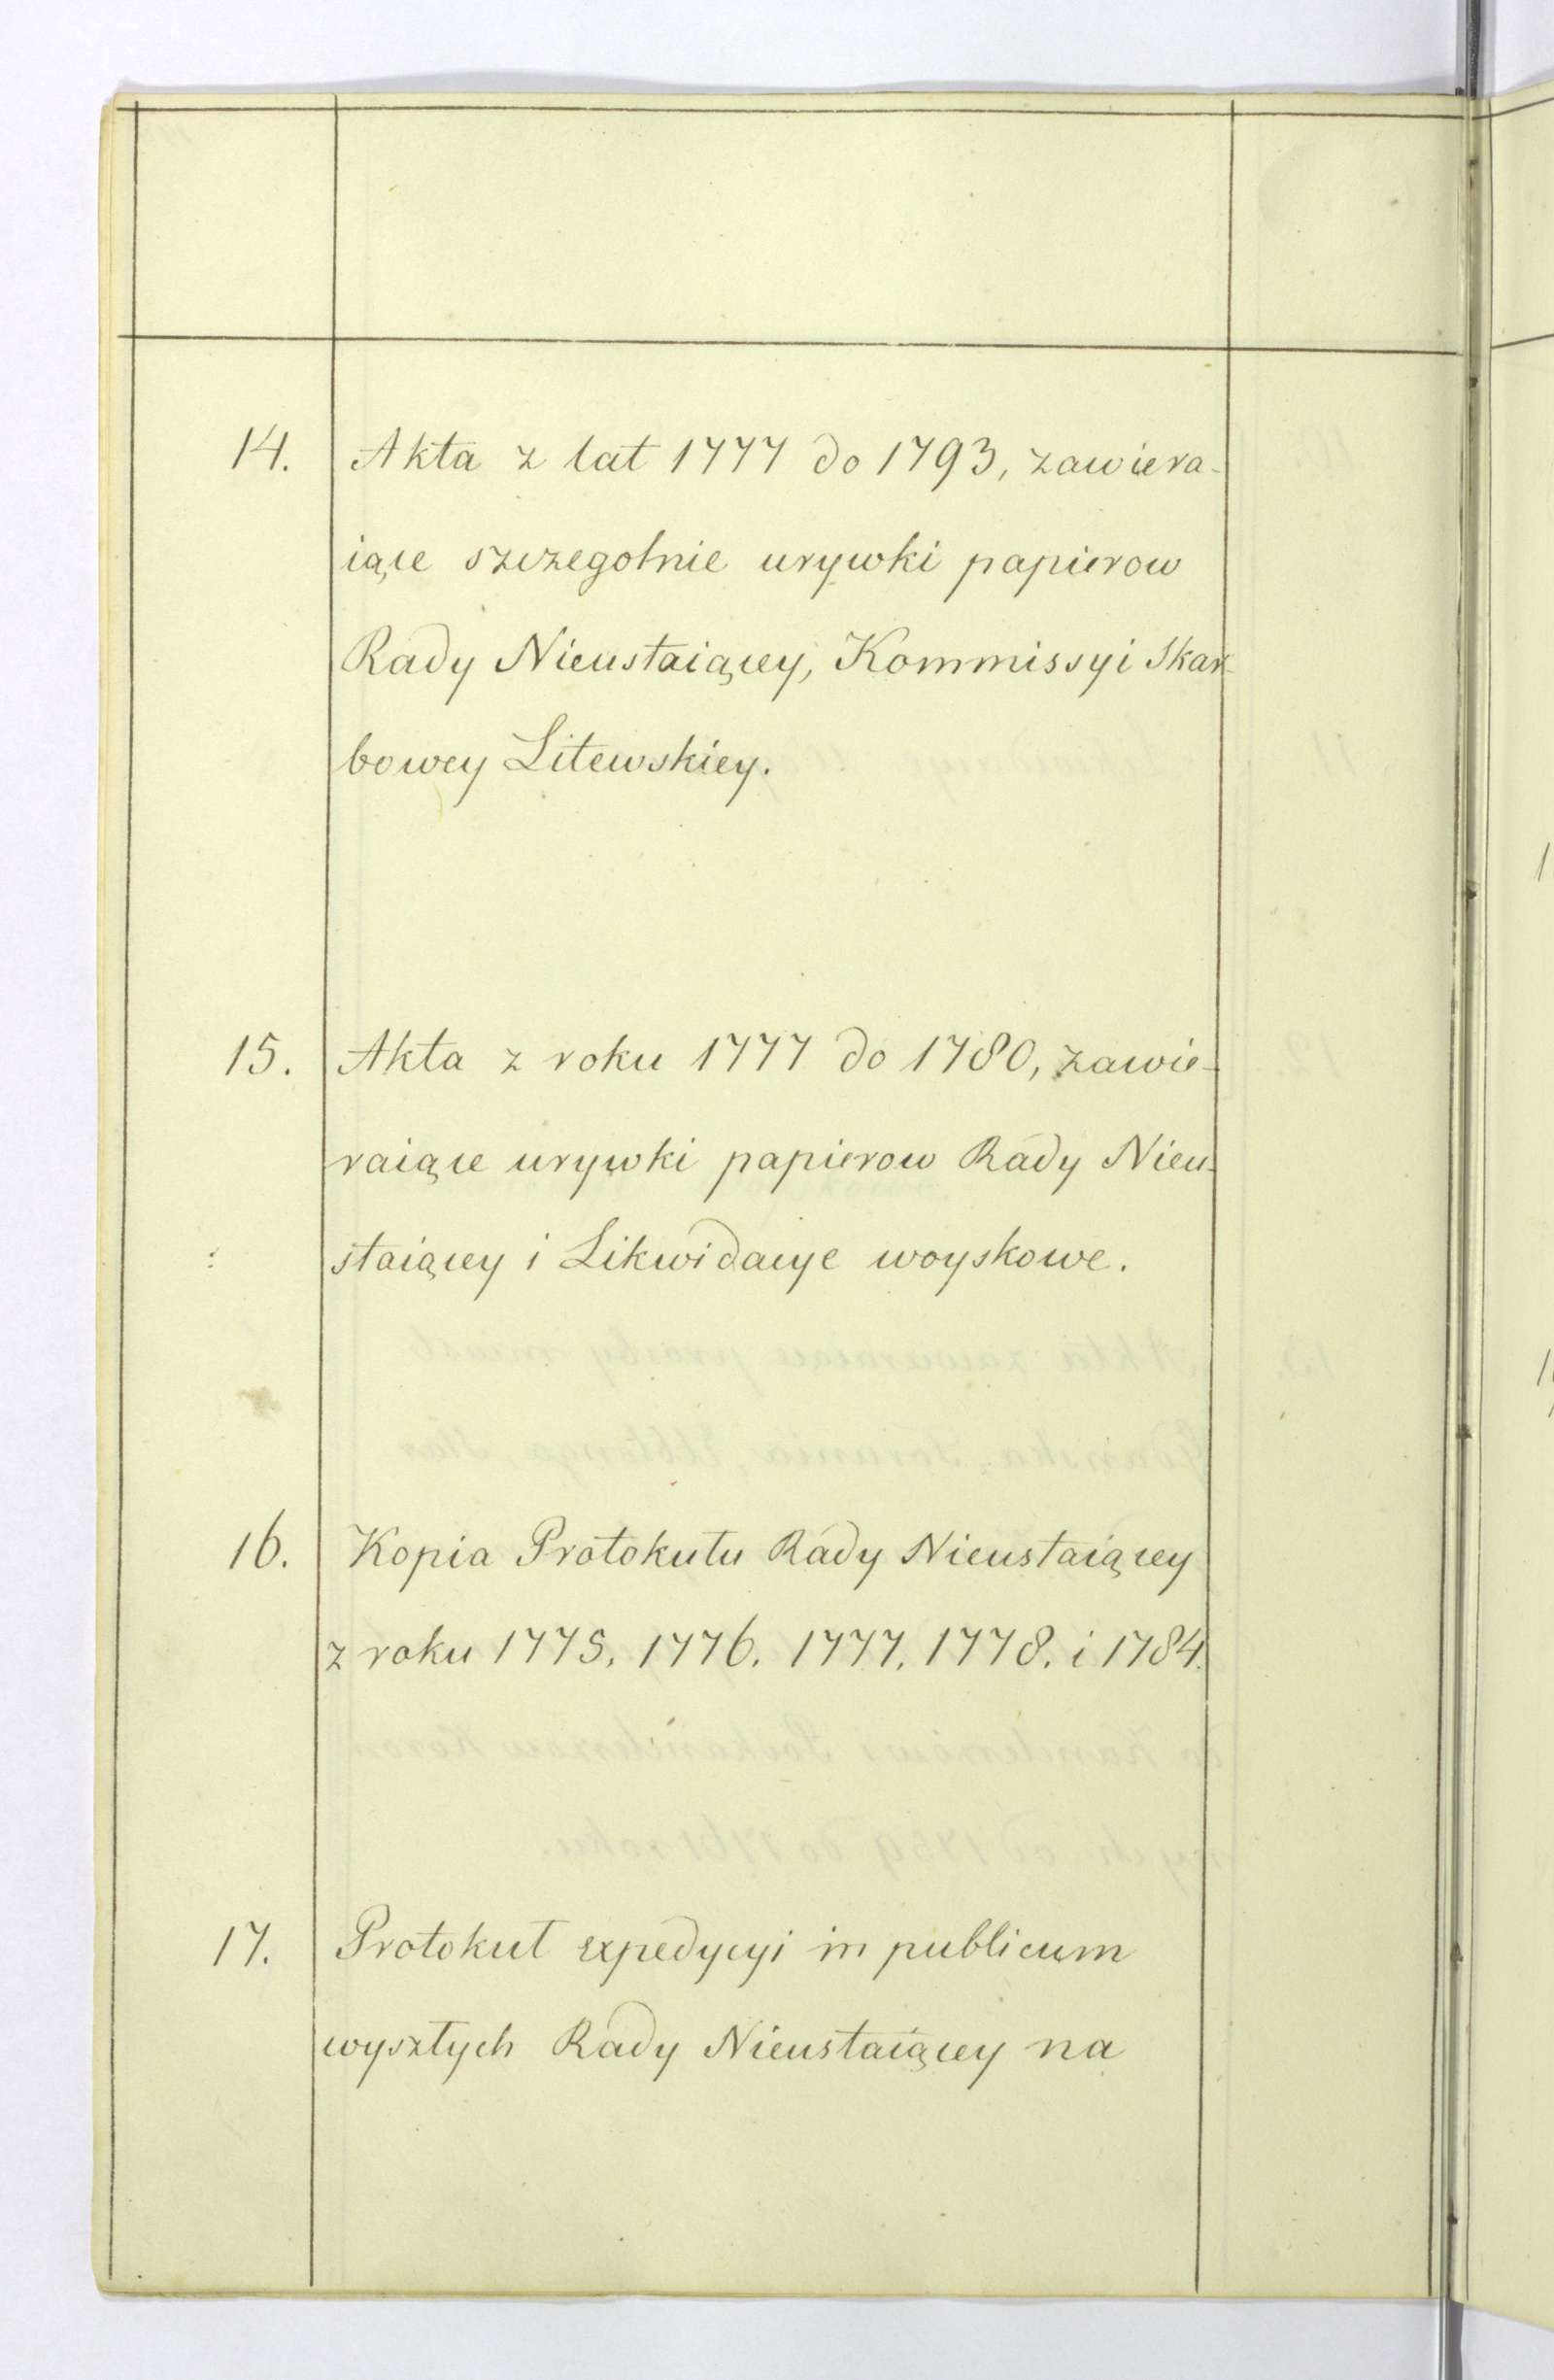 14. Akta z lat 1777 do 1793, zawiera-
iące szczegolnie urywki papierow
Rady Nieustaiącey, Kommissyi Skar-
bowey Litewskiey.
15. Akta z roku 1777 do 1780, zawie-
raiące urywki papierow Rady Nieu-
staiącey i Likwidacye woyskowe.
16. Kopia Protokułu Rady Nieustaiącey
z roku 1775. 1776. 1777. 1778. i 1784.
17. Protokuł expedycyi in publicum
wyszłych Rady Nieustaiącey na